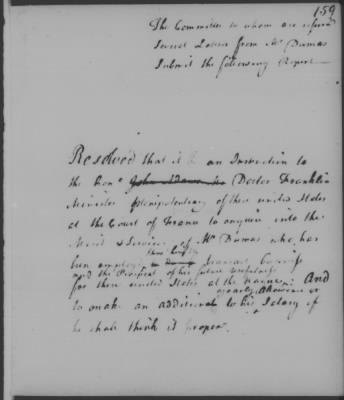 159
The Committee to whom are referd
Several Letters from Mr Dumas
Submit the following Report
Resolved that it be an Instruction to
the Honle John Adams Doctor Franklin
Minister plenipotentiary of these united States
at the Court of France to enquire into the
Merit & Services of Mr Dumas who has
been employed Several
and the Prospect of his future usefulness
for these united States at the Hague. And
yearly Allowance or
to make an additional to his Salary if
he shall think it proper.